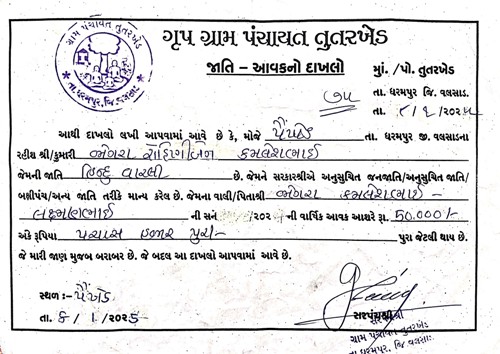 ગૃપ ગ્રામ પંચાયત તુતરખેડ
જાતિ – આવકનો દાખલો
મું. /પો. તુતરખેડ
તા. ધરમપુર જિ. વલસાડ.
૭૫
તા. ૮/૧/૨૦૨૪
આથી દાખલો લખી આપવામાં આવે છે કે, મોજે પૈંખેડ તા. ધરમપુર જી. વલસાડના
રહીશ શ્રી/કુમારી ભોયરા રોહિણીબેન કમલેશભાઈ
જેમની જાતિ હિન્દુ વારલી છે. જેમને સરકારશ્રીએ અનુસુચિત જનજાતિ/અનુસુચિત જાતિ/
બક્ષીપંચ/અન્ય જાતિ તરીકે માન્ય કરેલ છે. જેમના વાલી/પિતાશ્રી ભોયરા કમલેશભાઈ
લક્ષ્મણભાઈ ની સને ની વાર્ષિક આવક આશરે રૂા. 50,000/-
અંકે રૂપિયા પચાસ હજાર પુરા પુરા જેટલી થાય છે.
જે મારી જાણ મુજબ બરાબર છે. જે બદલ આ દાખલો આપવામાં આવે છે.
સ્થળ :- પૈંખેડ
તા. ૮/૧/૨૦૨૪
સરપંચશ્રી
સરપંચશ્રી
ગ્રામ પંચાયત તુતરખેડ
તા. ધરમપુર, જિ. વલસાડ.
ગ્રામ પંચાયત તુતરખેડ
તા. ધરમપુર, જિ. વલસાડ